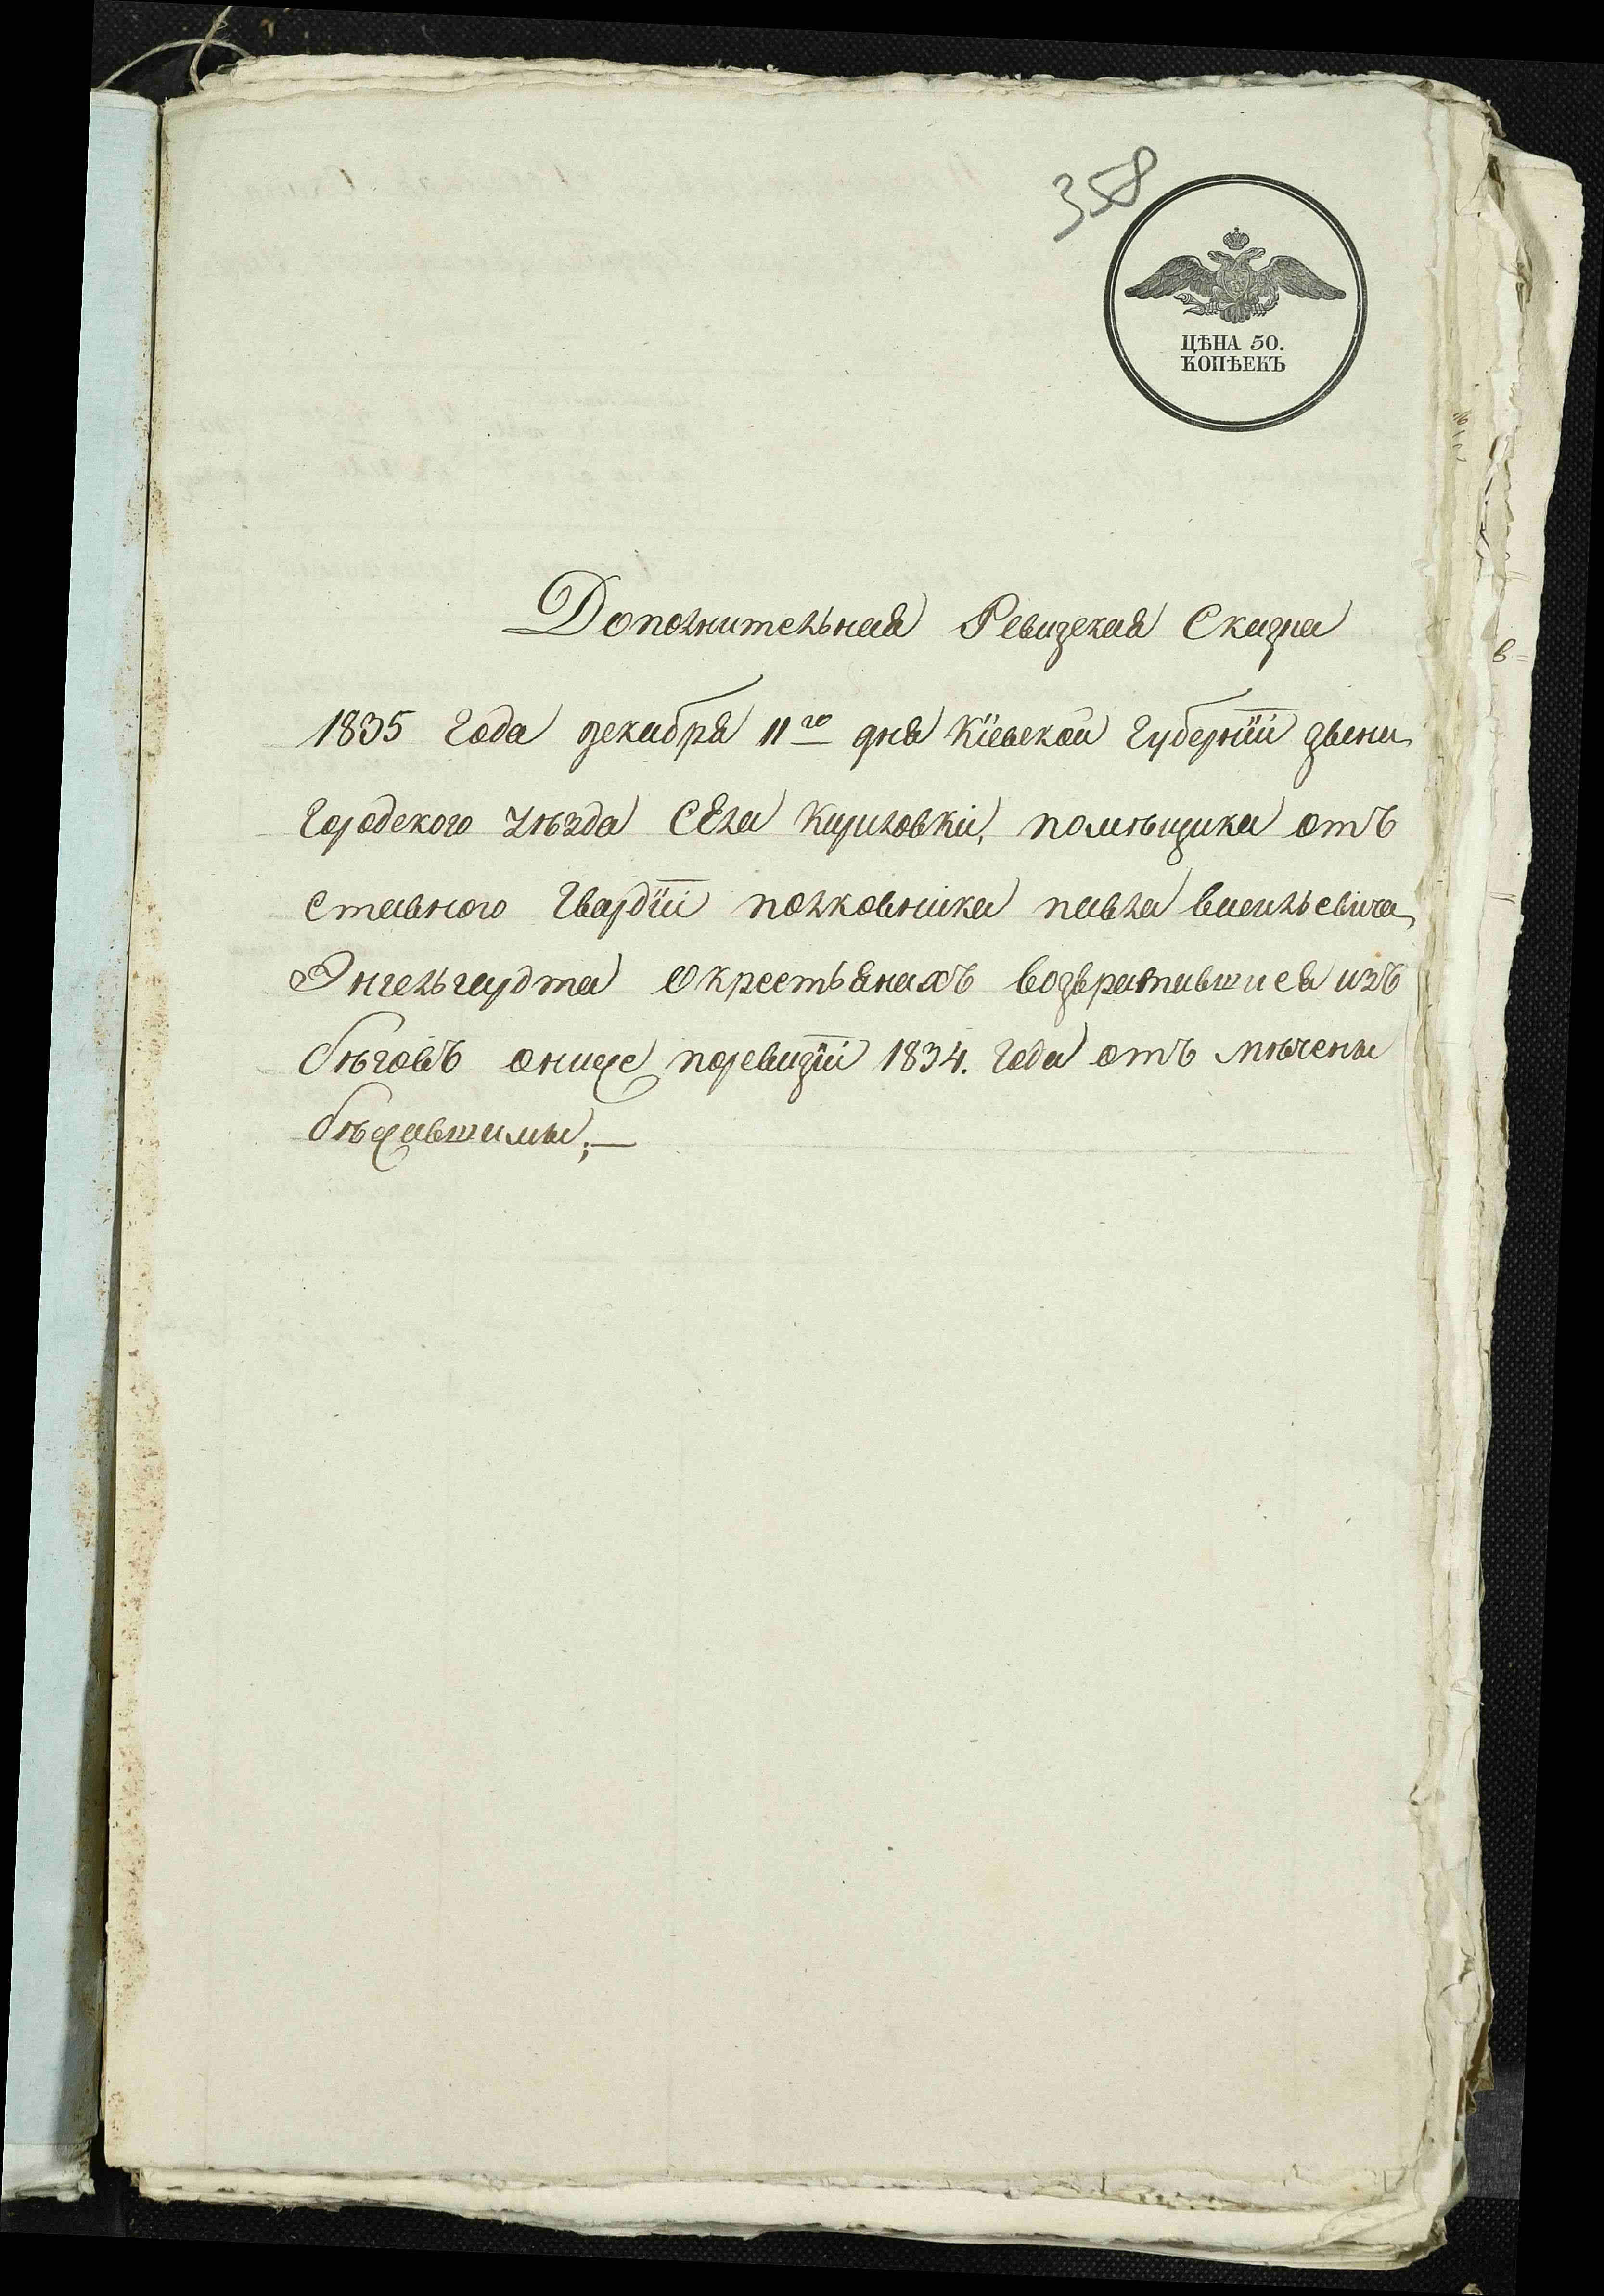 358
ЦѢНА 50.
КОПѢЕКЪ
Дополнительная Ревизская Сказка
1835 года декабря 11го дня Кіевской Губерніи звени
городского уѣзда Села Кириловки, помѣщика отъ
ставного Гвардіи полковника павла васильевича
Энгельгардта окрестьянахъ возвратившися изъ
бѣговъ онихже поревизіи 1834. года отъ мѣчены
бѣжавшимы;—